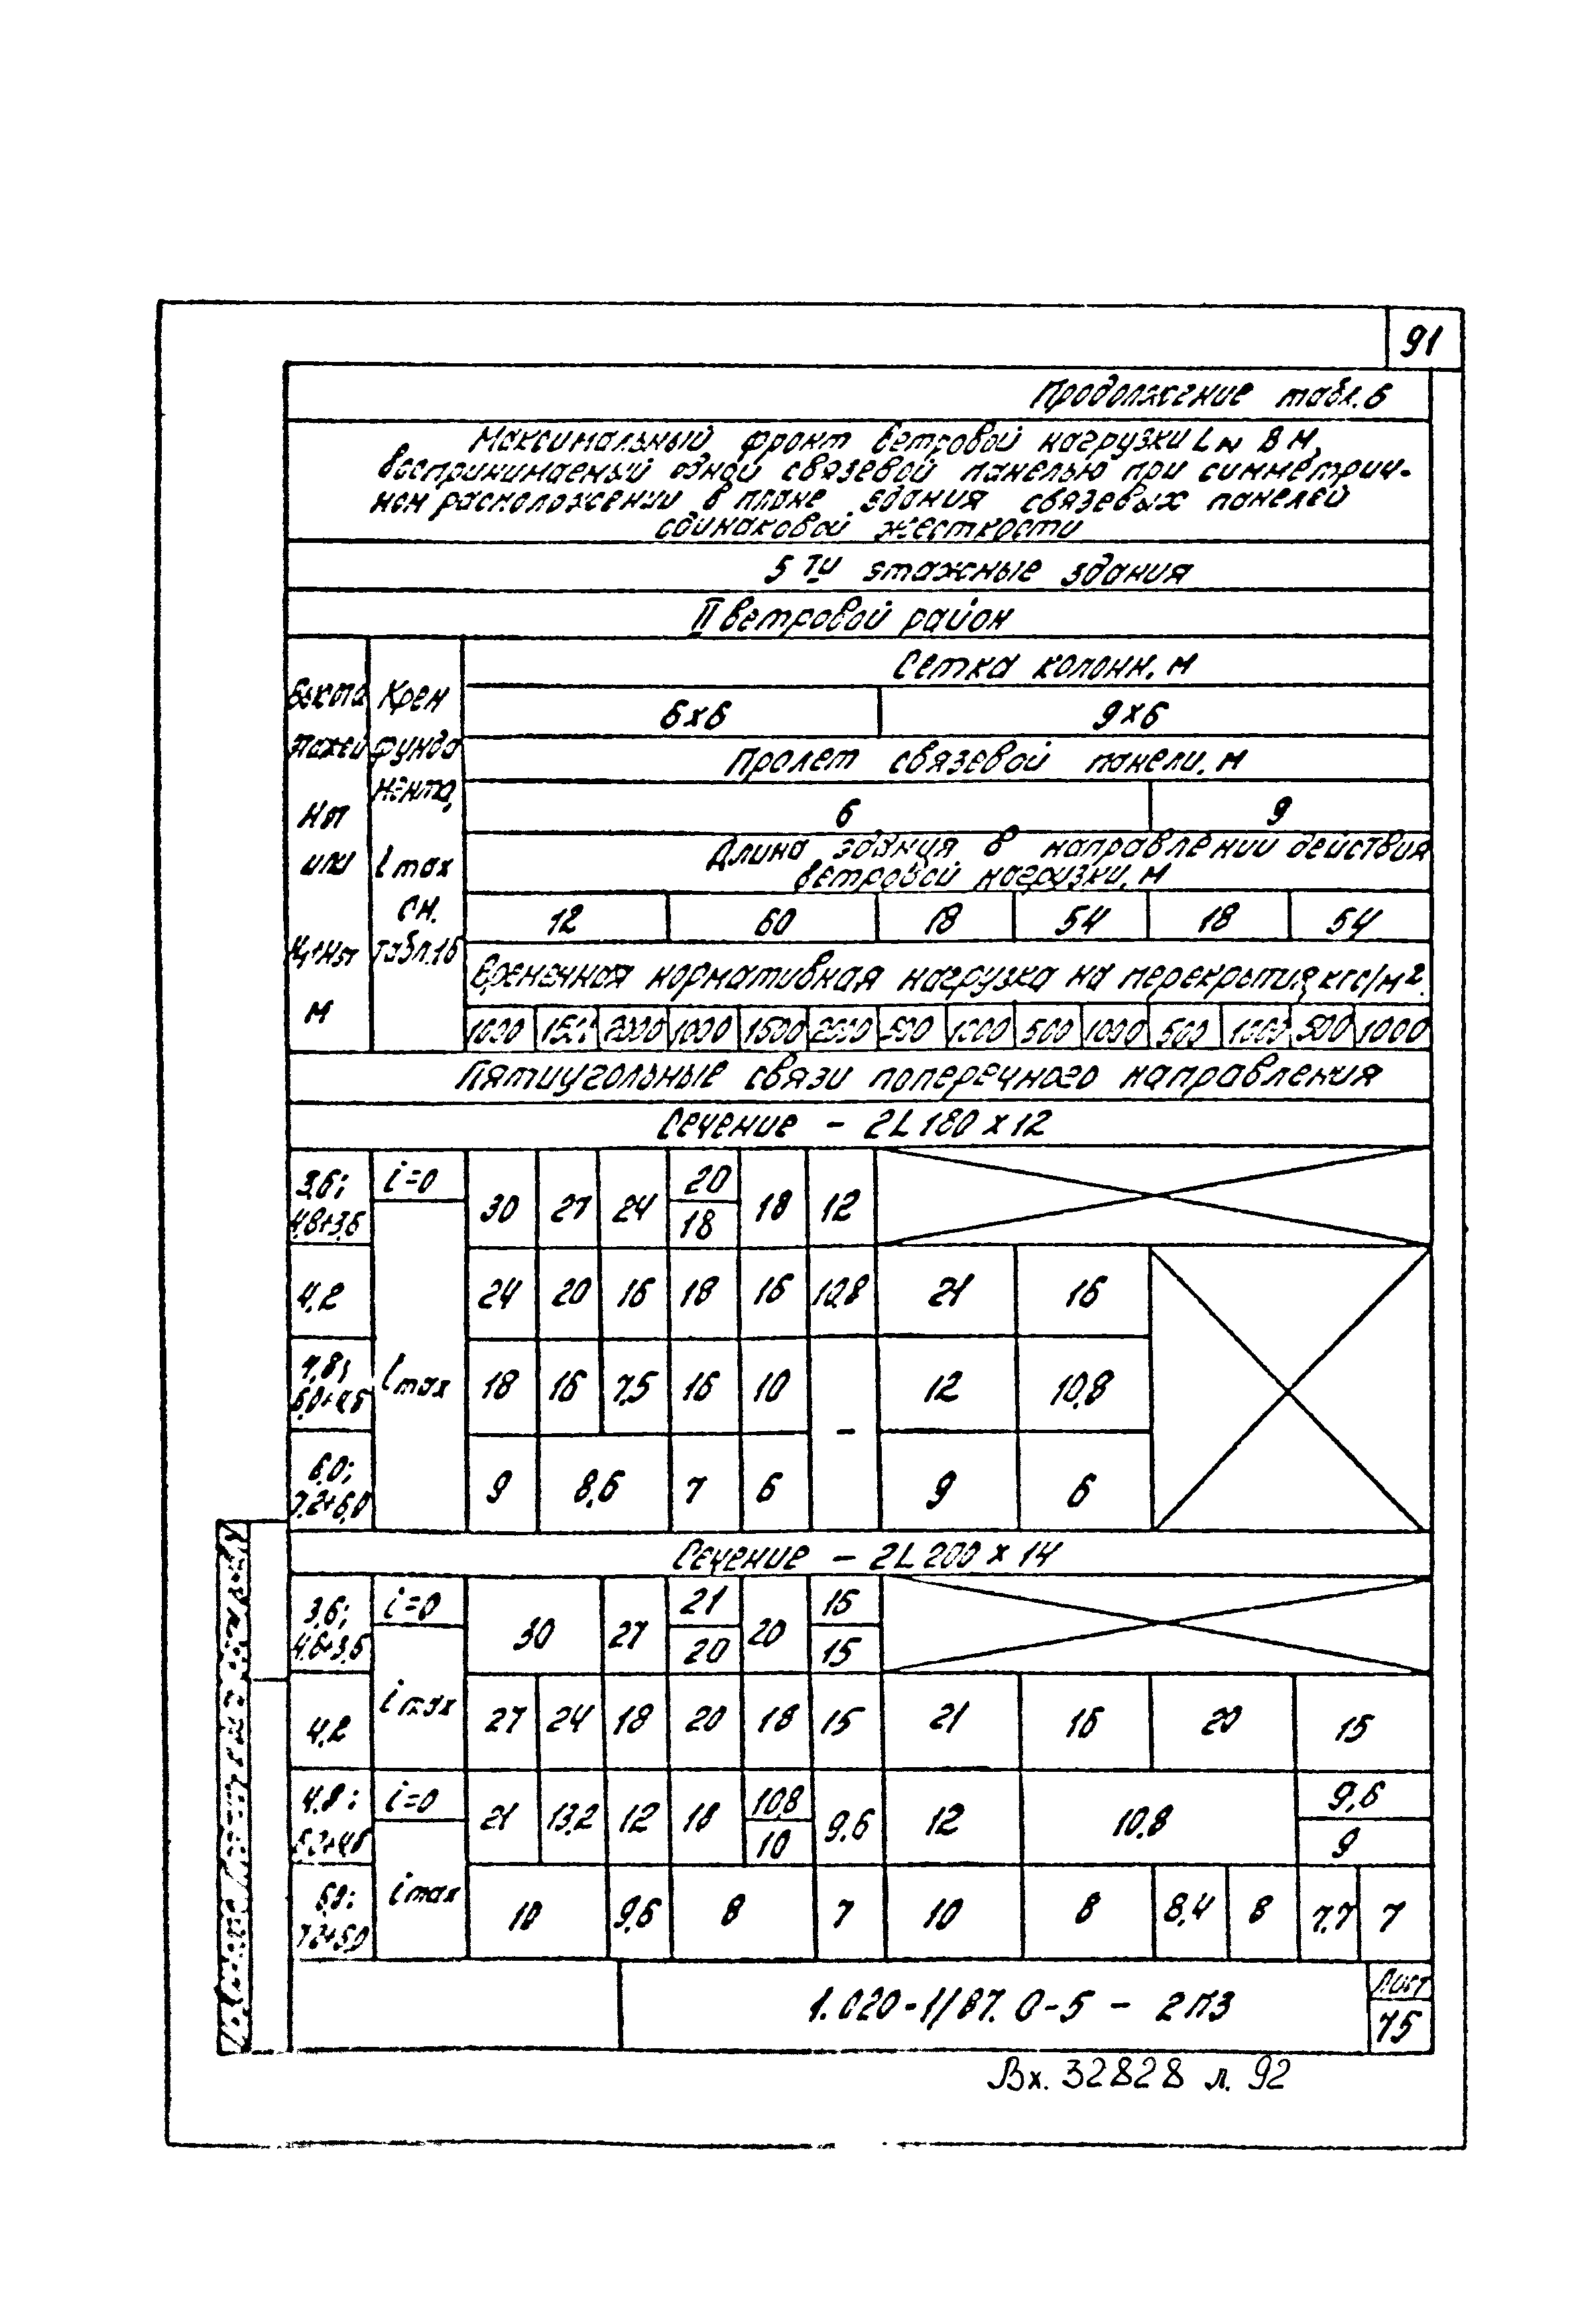 91
Продолжение табл. 6
Максимальный фронт ветровой нагрузки Lw в м,
воспринимаемый одной связевой панелью при симметрич-
ном расположении в плане здания связевых панелей
одинаковой жесткости
5ти этажные здания
II ветровой район
Высота этажей Нэт или Н1+Нэт м
Крен фундамента, imax см. табл. 16
Сетка колонн, м
6х6 9х6
Пролет связевой панели, м
6 9
Длина здания в направлении действия
ветровой нагрузки, м
12 60 18 54 18 54
Временная нормативная нагрузка на перекрытия, кгс/м².
1000 1500 2000 1000 1500 2000 500 1000 500 1000 500 1000 500 1000
Пятиугольные связи поперечного направления
Сечение – 2L 180 х 12
3,6; 4,8+3,6 i=0 30 27 24 20 18 18 12
4,2 24 20 16 18 16 10,8 21 16
4,8; 6,0+4,8 imax 18 16 7,5 16 10 – 12 10,8
6,0; 7,2+6,0 9 8,6 7 6 9 6
Сечение – 2L 200 х 14
3,6; 4,8+3,6 i=0 30 27 21 20 20 16 15
4,2 imax 27 24 18 20 18 15 21 16 20 15
4,8; 6,0+4,8 i=0 21 13,2 12 18 10,8 10 9,6 12 10,8 9,6 9
6,0; 7,2+6,0 imax 10 9,6 8 7 10 8 8,4 8 7,7 7
1.020-1/87. 0-5 – 2ПЗ
Лист
75
Вх. 32828 л. 92